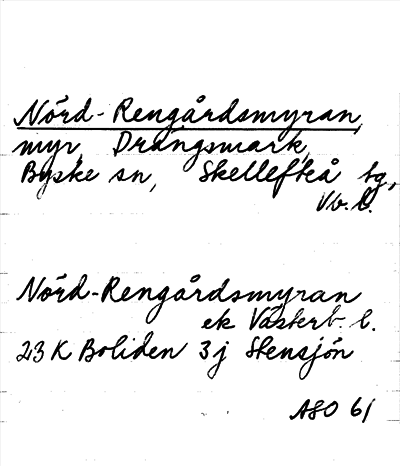 Nórd-Rengårdsmyran,
myr, Drängsmark,
Byske sn, Skellefteå tg,
Vb. l.
Nórd-Rengårdsmyran
ek Västerb. l.
23 K Boliden 3j Stensjön
ASO 61